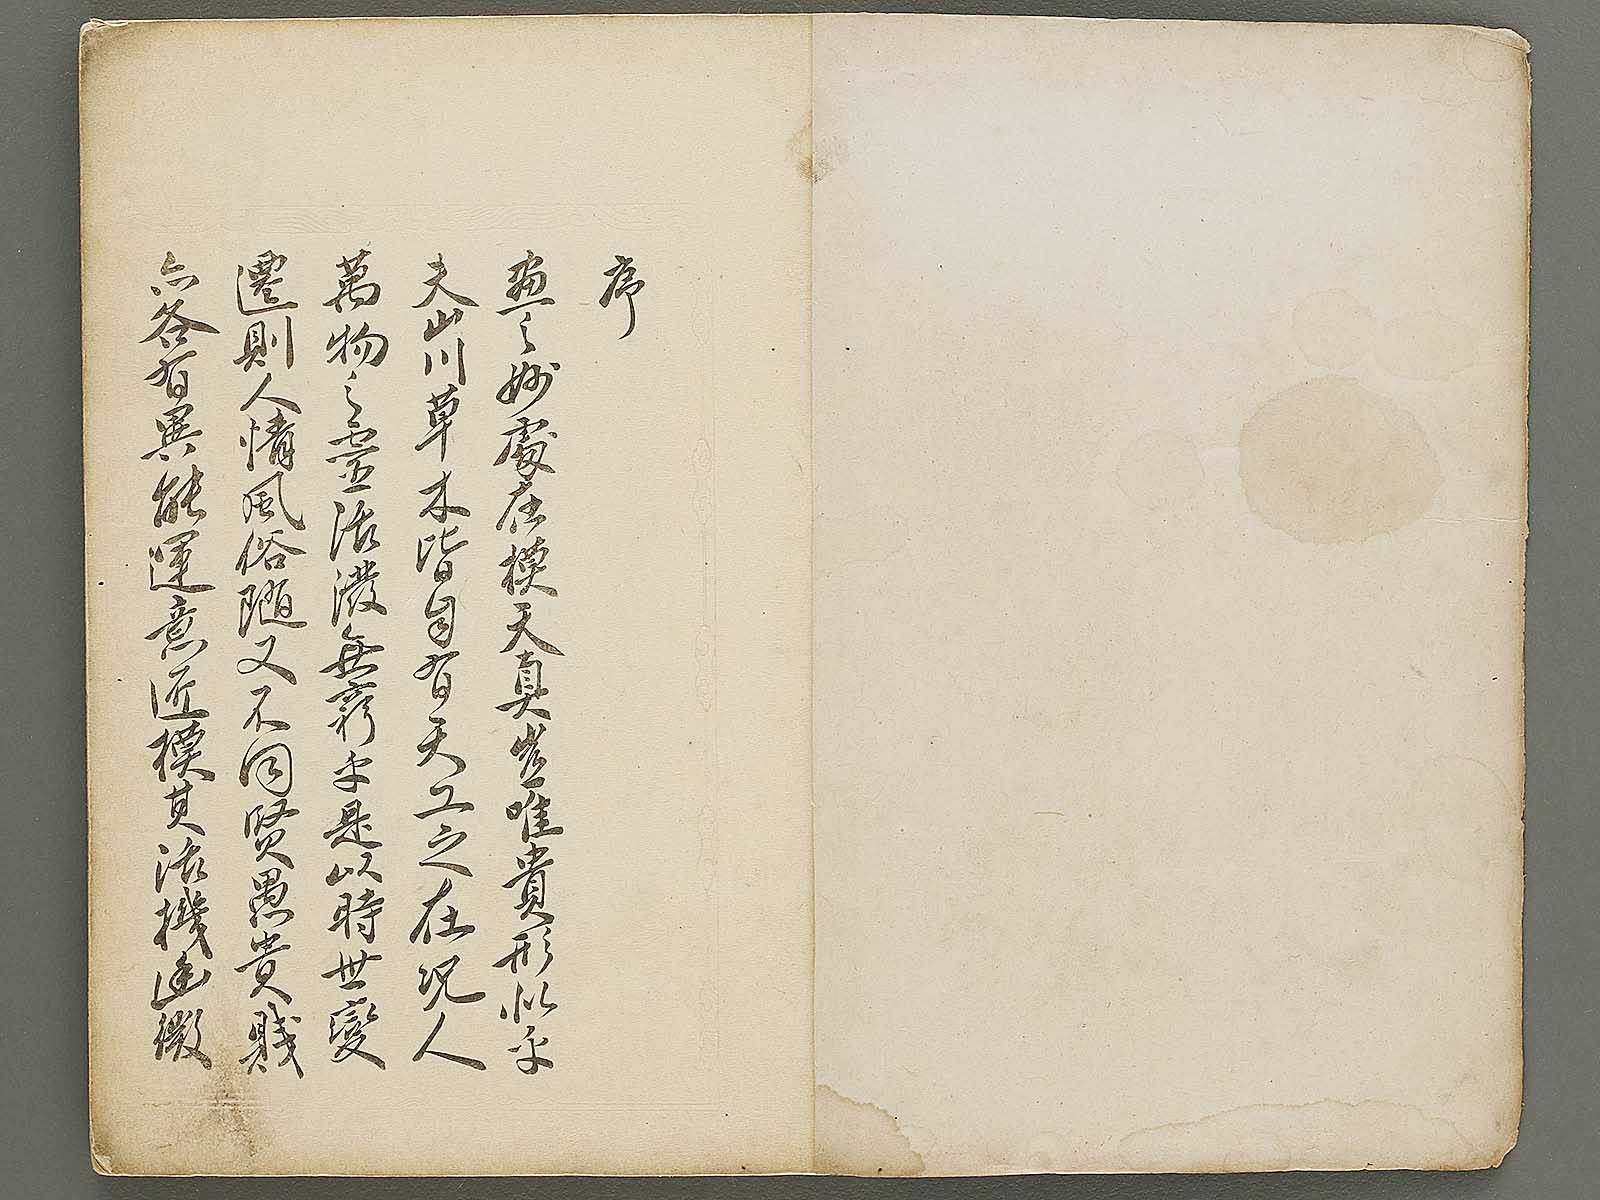 序
畫之妙處在模天真豈唯貴形似乎
夫山川草木皆自有天工之在况人
萬物之靈活潑無窮乎是以時世變
遷則人情風俗隨又不同賢愚貴賤
亦各有異能運意匠模其活機幽微